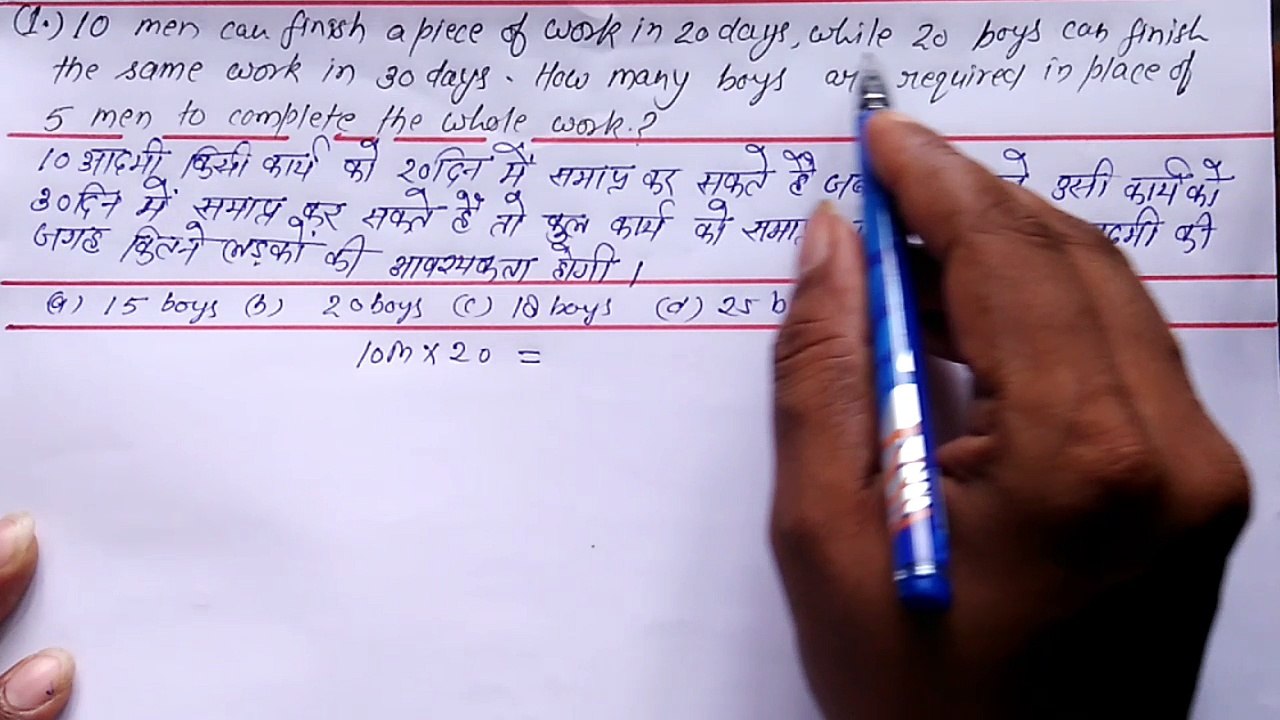 (1.) 10 men can finish a piece of work in 20 days, while 20 boys can finish
the same work in 30 days. How many boys are required in place of
5 men to complete the whole work.?
10 आदमी किसी कार्य को 20 दिन में समाप्त कर सकते हैं उसी कार्य को
30 दिन में समाप्त कर सकते हैं तो कुल कार्य को की
जगह कितने लड़कों की आवश्यकता होगी ।
(a) 15 boys (b) 20 boys (c) 18 boys (d) 25
10m × 20 =